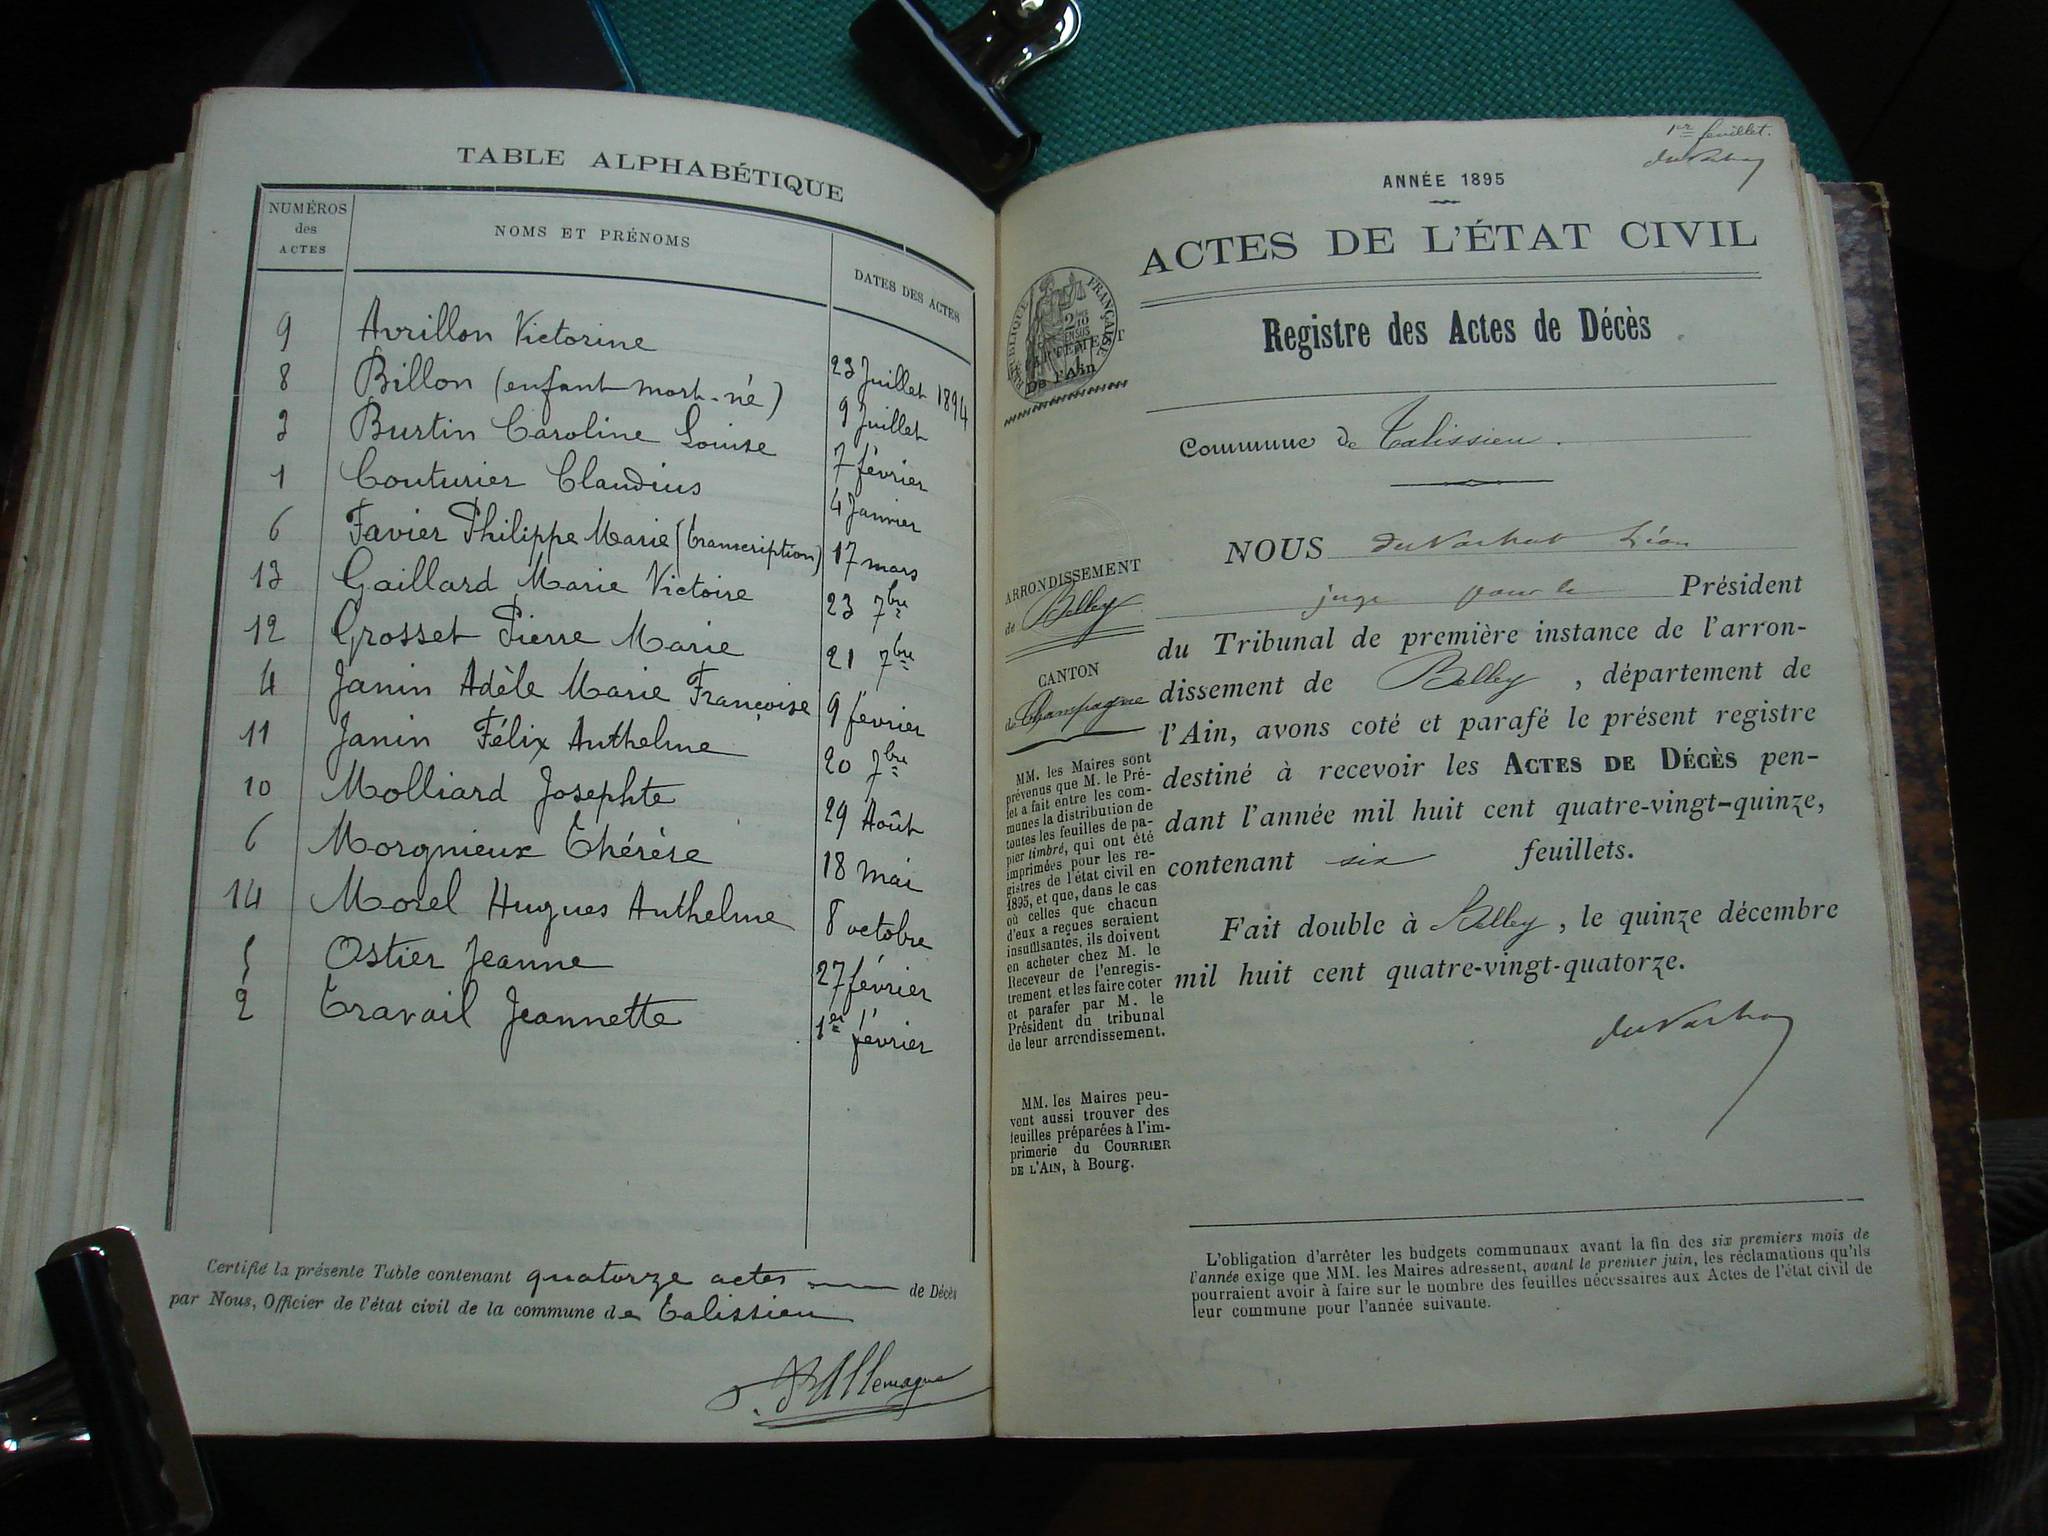 TABLE ALPHABÉTIQUE
NUMÉROS des ACTES
NOMS ET PRÉNOMS
DATES DES ACTES
9 Avrillon Victorine 23 Juillet 1894
8 Billon (enfant mort-né) 9 Juillet
3 Burtin Caroline Louise 7 février
1 Couturier Claudius 4 Janvier
6 Favier Philippe Marie (transcription) 17 mars
13 Gaillard Marie Victoire 23 7bre
12 Grosset Pierre Marie 21 7bre
4 Janin Adèle Marie Françoise 9 février
11 Janin Félix Anthelme 20 7bre
10 Molliard Josephte 29 Août
6 Morgnieux Thérèse 18 mai
14 Morel Hugues Anthelme 8 octobre
5 Ostier Jeanne 27 février
2 Travail Jeannette 1er février
Certifié la présente Table contenant quatorze actes de Décès
par Nous, Officier de l'état civil de la commune de Talissieu
Allemagne
1er feuillet.
ANNÉE 1895
ACTES DE L'ÉTAT CIVIL
Registre des Actes de Décès
RÉPUBLIQUE FRANÇAISE
De l'Ain
Commune de Talissieu.
ARRONDISSEMENT
de Belley
CANTON
de Champagne
MM. les Maires sont
prévenus que M. le Pré-
fet a fait entre les com-
munes la distribution de
toutes les feuilles de pa-
pier timbré, qui ont été
imprimées pour les re-
gistres de l'état civil en
1895, et que, dans le cas
où celles que chacun
d'eux a reçues seraient
insuffisantes, ils doivent
en acheter chez M. le
Receveur de l'enregis-
trement et les faire coter
et parafer par M. le
Président du tribunal
de leur arrondissement.
MM. les Maires peu-
vent aussi trouver des
feuilles préparées à l'im-
primerie du COURRIER
DE L'AIN, à Bourg.
NOUS Léon
juge pour le Président
du Tribunal de première instance de l'arron-
dissement de Belley, département de
l'Ain, avons coté et parafé le présent registre
destiné à recevoir les ACTES DE DÉCÈS pen-
dant l'année mil huit cent quatre-vingt-quinze,
contenant six feuillets.
Fait double à Belley, le quinze décembre
mil huit cent quatre-vingt-quatorze.
L'obligation d'arrêter les budgets communaux avant la fin des six premiers mois de
l'année exige que MM. les Maires adressent, avant le premier juin, les réclamations qu'ils
pourraient avoir à faire sur le nombre des feuilles nécessaires aux Actes de l'état civil de
leur commune pour l'année suivante.